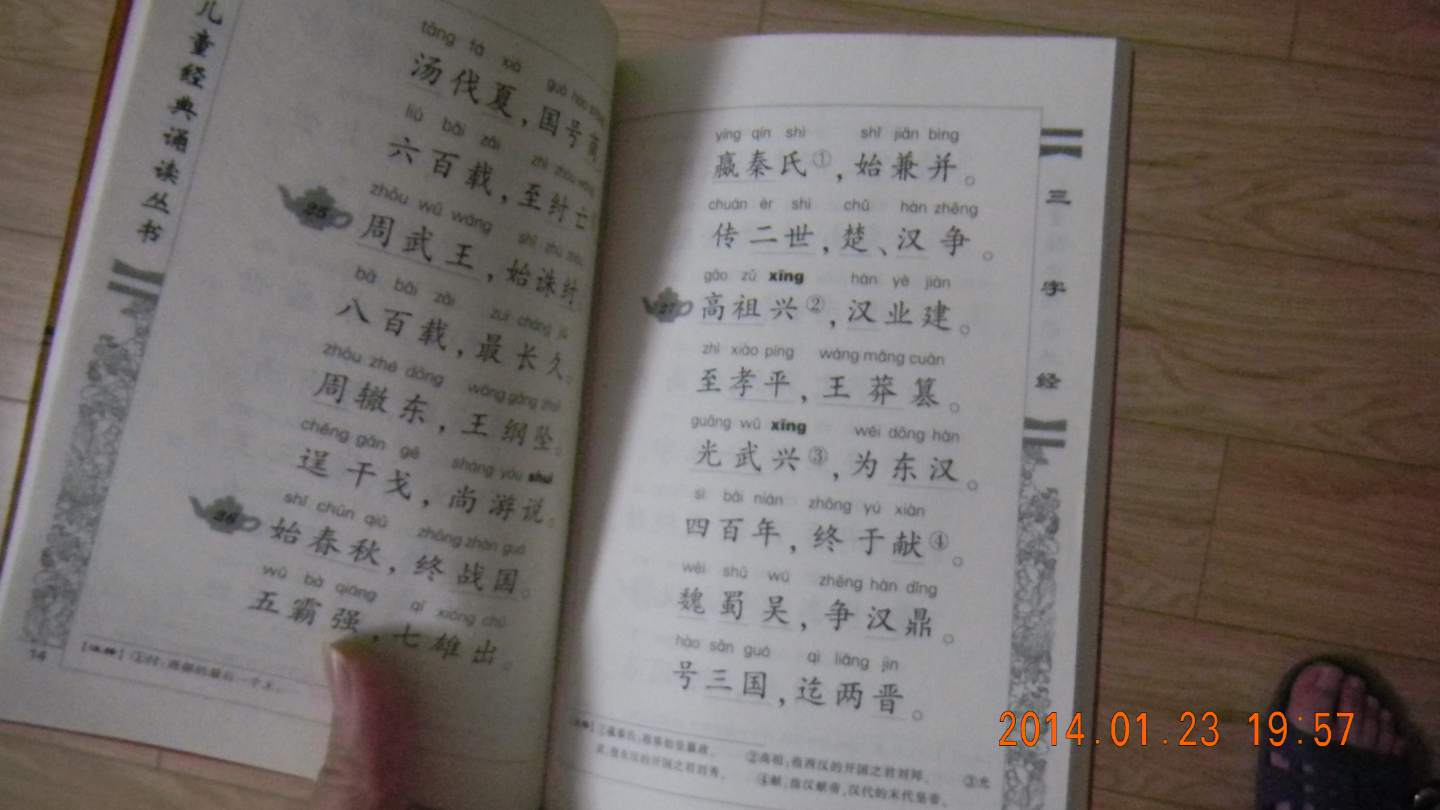 儿童经典诵读丛书
tāng fá xià guó hào
汤伐夏，国号商
liù bǎi zǎi zhì zhòu
六百载，至纣亡
25
zhōu wǔ wáng shǐ zhū zhòu
周武王，始诛纣。
bā bǎi zǎi zuì cháng jiǔ
八百载，最长久。
zhōu zhé dōng wáng gāng zhuì
周辙东，王纲坠。
chěng gān gē shàng yóu shuì
逞干戈，尚游说。
26
shǐ chūn qiū zhōng zhàn guó
始春秋，终战国。
wǔ bà qiáng qī xióng chū
五霸强，七雄出。
[注释] ①纣：商朝的最后一个王。
14
三字经
yíng qín shì shǐ jiān bìng
嬴秦氏①，始兼并。
chuán èr shì chǔ hàn zhēng
传二世，楚、汉争。
27
gāo zǔ xīng hàn yè jiàn
高祖兴②，汉业建。
zhì xiào píng wáng mǎng cuàn
至孝平，王莽篡。
guāng wǔ xīng wéi dōng hàn
光武兴③，为东汉。
sì bǎi nián zhōng yú xiàn
四百年，终于献④。
wèi shǔ wú zhēng hàn dǐng
魏蜀吴，争汉鼎。
hào sān guó qì liǎng jìn
号三国，迄两晋。
[注释] ①嬴秦氏：指秦始皇嬴政。 ②高祖：指西汉的开国之君刘邦。 ③光
武：指东汉的开国之君刘秀。 ④献：指汉献帝，汉代的末代皇帝。
2014.01.23 19:57